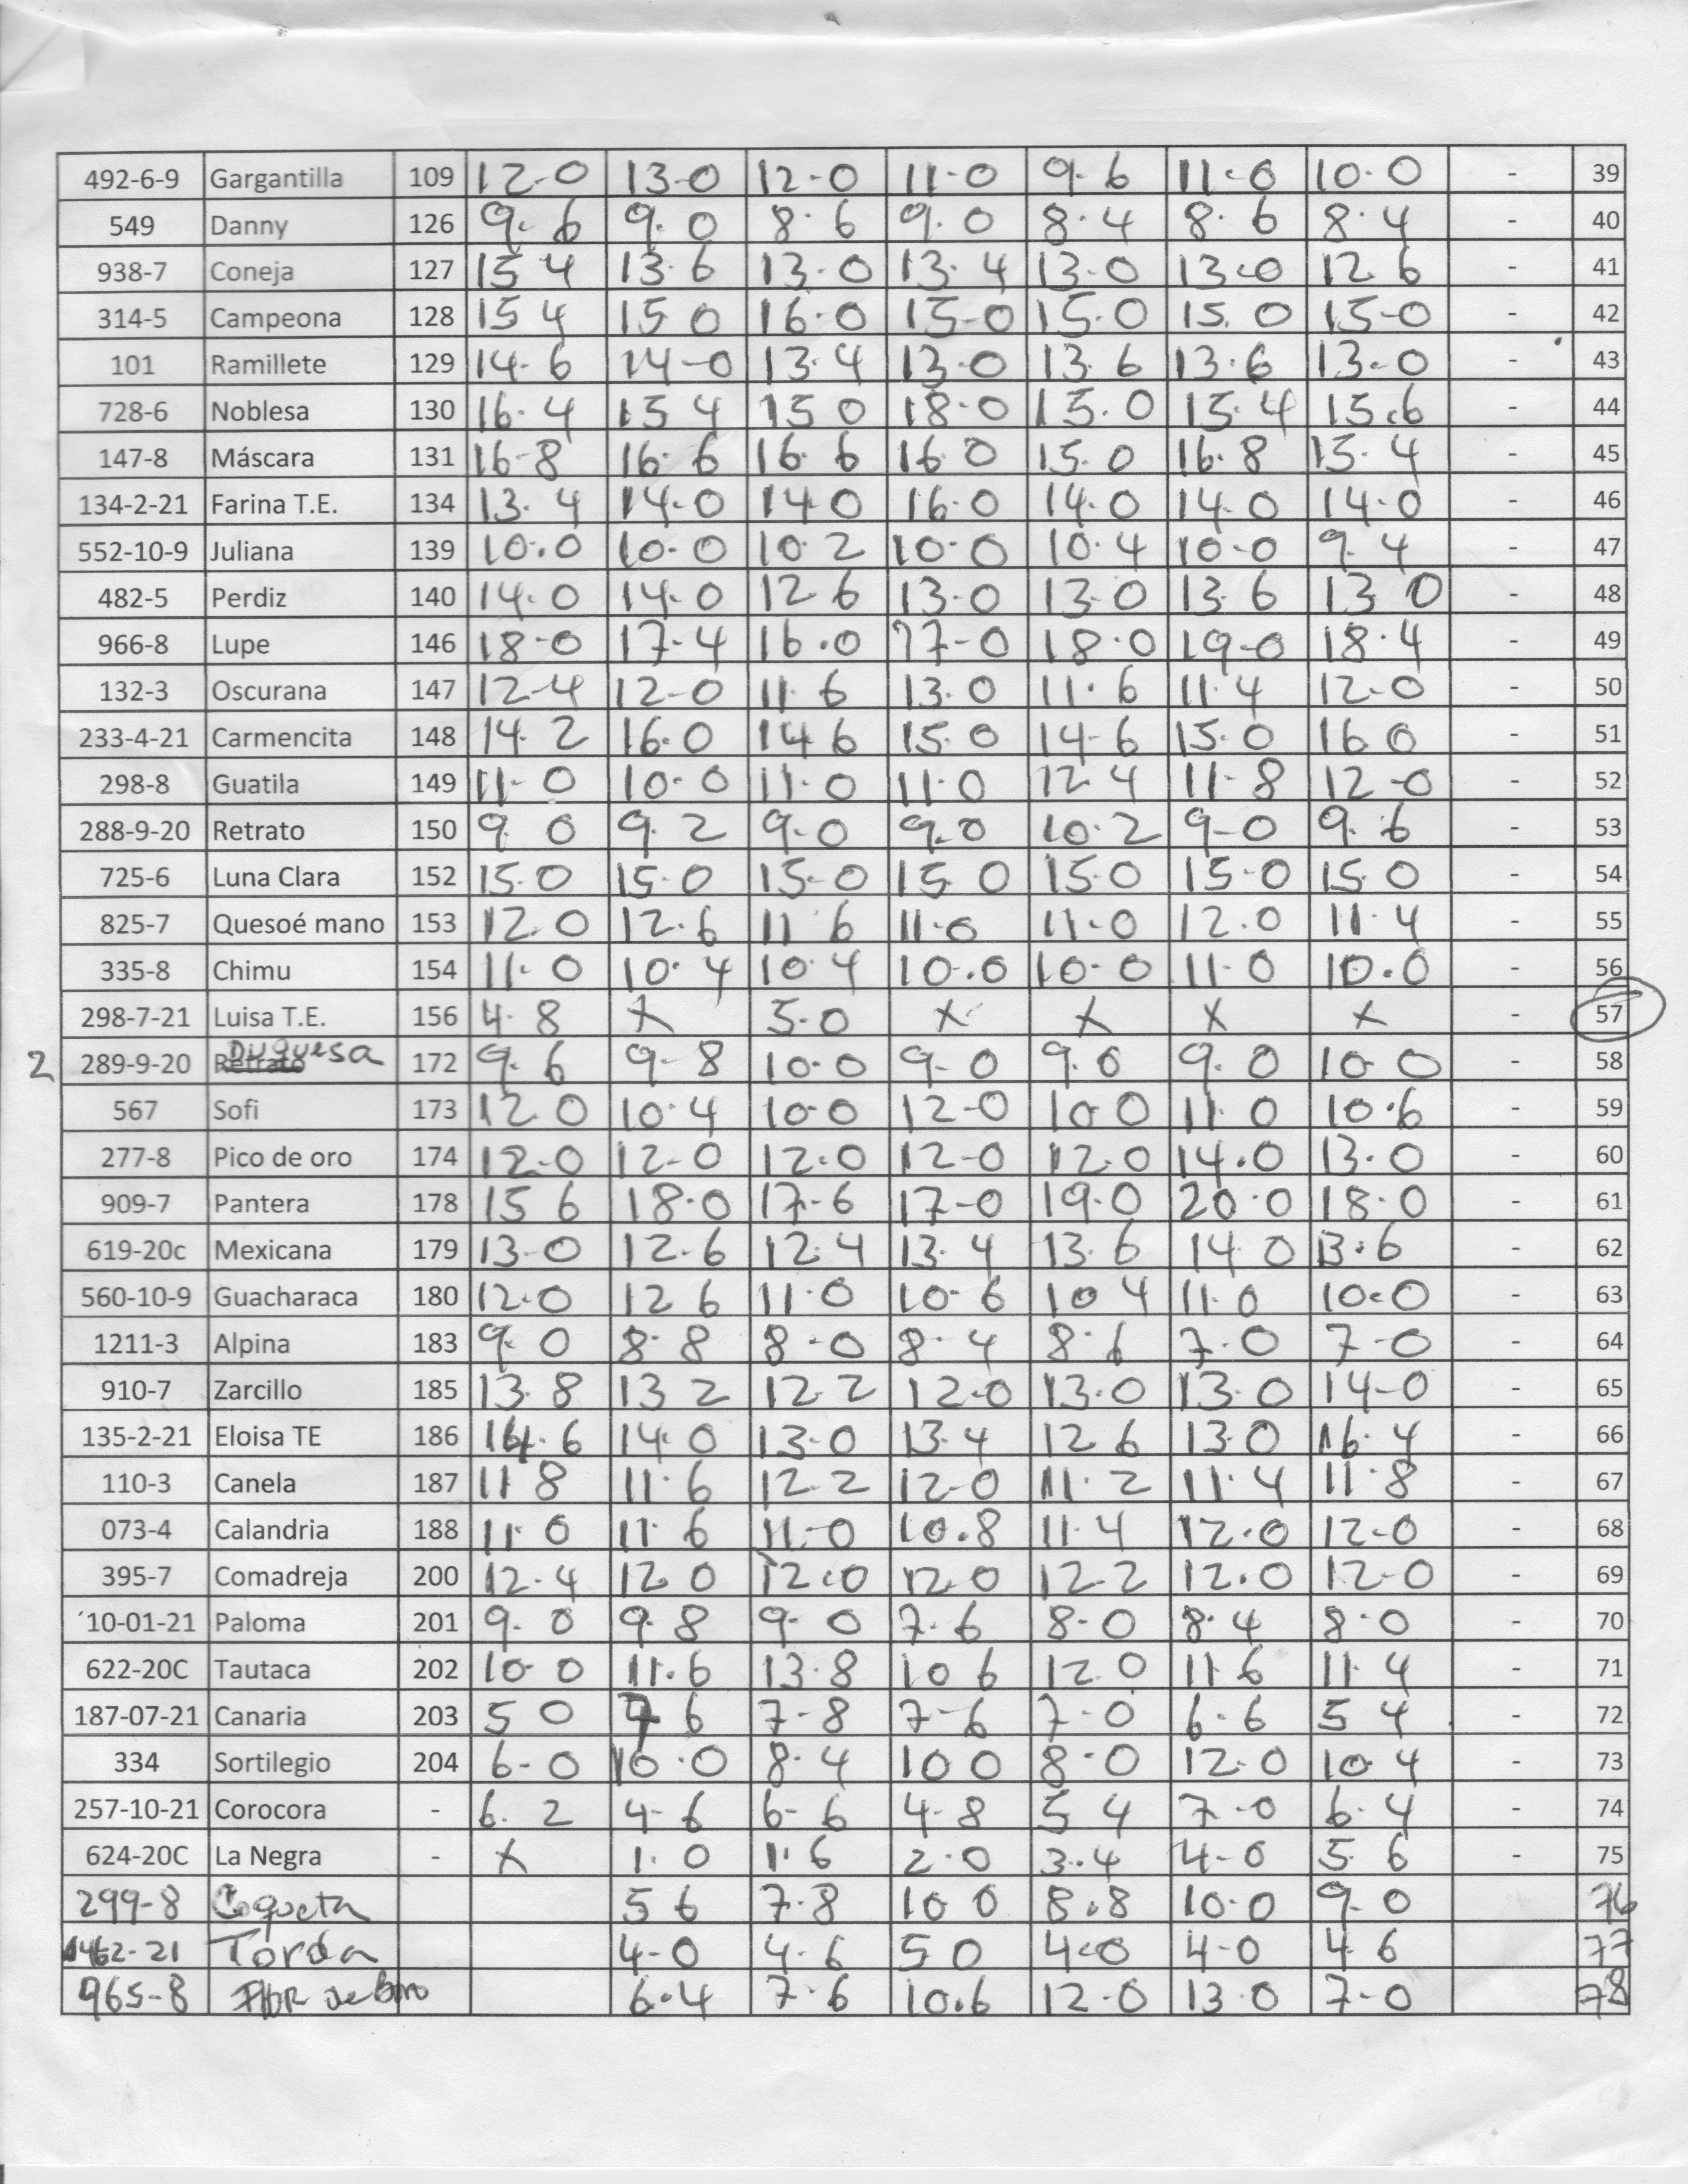 492-6-9 Gargantilla 109 12-0 13-0 12-0 11-0 9.6 11-0 10.0 - 39
549 Danny 126 9.6 9.0 8.6 9.0 8.4 8.6 8.4 - 40
938-7 Coneja 127 15 4 13.6 13.0 13.4 13.0 13.0 12 6 - 41
314-5 Campeona 128 15 4 15 0 16.0 15-0 15.0 15.0 15-0 - 42
101 Ramillete 129 14.6 14-0 13.4 13.0 13.6 13.6 13.0 - 43
728-6 Noblesa 130 16.4 15 4 15 0 18.0 15.0 15.4 15.6 - 44
147-8 Máscara 131 16-8 16.6 16.6 16 0 15.0 16.8 15.4 - 45
134-2-21 Farina T.E. 134 13.4 14.0 14 0 16.0 14.0 14.0 14.0 - 46
552-10-9 Juliana 139 10.0 10-0 10.2 10.0 10.4 10-0 9.4 - 47
482-5 Perdiz 140 14.0 14.0 12 6 13.0 13.0 13.6 13 0 - 48
966-8 Lupe 146 18-0 17-4 16.0 17-0 18.0 19-0 18.4 - 49
132-3 Oscurana 147 12-4 12-0 11.6 13.0 11.6 11.4 12.0 - 50
233-4-21 Carmencita 148 14.2 16.0 14 6 15.0 14-6 15.0 16 0 - 51
298-8 Guatila 149 11-0 10.0 11.0 11.0 12.4 11-8 12-0 - 52
288-9-20 Retrato 150 9 0 9.2 9-0 9.0 10.2 9-0 9.6 - 53
725-6 Luna Clara 152 15.0 15.0 15-0 15 0 15.0 15-0 15.0 - 54
825-7 Quesoé mano 153 12.0 12.6 11 6 11.0 11.0 12.0 11.4 - 55
335-8 Chimu 154 11-0 10.4 10.4 10.0 10-0 11-0 10.0 - 56
298-7-21 Luisa T.E. 156 4.8 x 5.0 x x x x - 57
2 289-9-20 Retrato Duquesa 172 9.6 9-8 10.0 9-0 9.0 9.0 10 0 - 58
567 Sofi 173 12 0 10.4 10-0 12-0 10 0 11.0 10.6 - 59
277-8 Pico de oro 174 12-0 12-0 12.0 12-0 12.0 14.0 13.0 - 60
909-7 Pantera 178 15 6 18.0 17-6 17-0 19.0 20.0 18.0 - 61
619-20c Mexicana 179 13-0 12.6 12.4 13.4 13.6 14 0 13.6 - 62
560-10-9 Guacharaca 180 12.0 12 6 11.0 10.6 10 4 11.0 10.0 - 63
1211-3 Alpina 183 9.0 8.8 8.0 8.4 8.6 7.0 7-0 - 64
910-7 Zarcillo 185 13.8 13 2 12.2 12-0 13.0 13.0 14-0 - 65
135-2-21 Eloisa TE 186 14.6 14.0 13.0 13.4 12 6 13.0 16.4 - 66
110-3 Canela 187 11 8 11.6 12.2 12-0 11.2 11.4 11.8 - 67
073-4 Calandria 188 11.0 11.6 11.0 10.8 11.4 12.0 12-0 - 68
395-7 Comadreja 200 12.4 12.0 12.0 12.0 12.2 12.0 12-0 - 69
´10-01-21 Paloma 201 9.0 9.8 9-0 7.6 8-0 8.4 8.0 - 70
622-20C Tautaca 202 10-0 11.6 13.8 10 6 12.0 11 6 11.4 - 71
187-07-21 Canaria 203 5 0 7 6 7-8 7-6 7-0 6.6 5 4 - 72
334 Sortilegio 204 6-0 10.0 8.4 10 0 8-0 12.0 10.4 - 73
257-10-21 Corocora - 6.2 4-6 6-6 4-8 5 4 7-0 6.4 - 74
624-20C La Negra - x 1.0 1.6 2.0 3.4 4-0 5 6 - 75
299-8 Coqueta 5 6 7.8 10 0 8.8 10.0 9.0 76
1462-21 Torda 4-0 4.6 5 0 4.0 4-0 4 6 77
965-8 Flor de 6.4 7.6 10.6 12.0 13.0 7-0 78